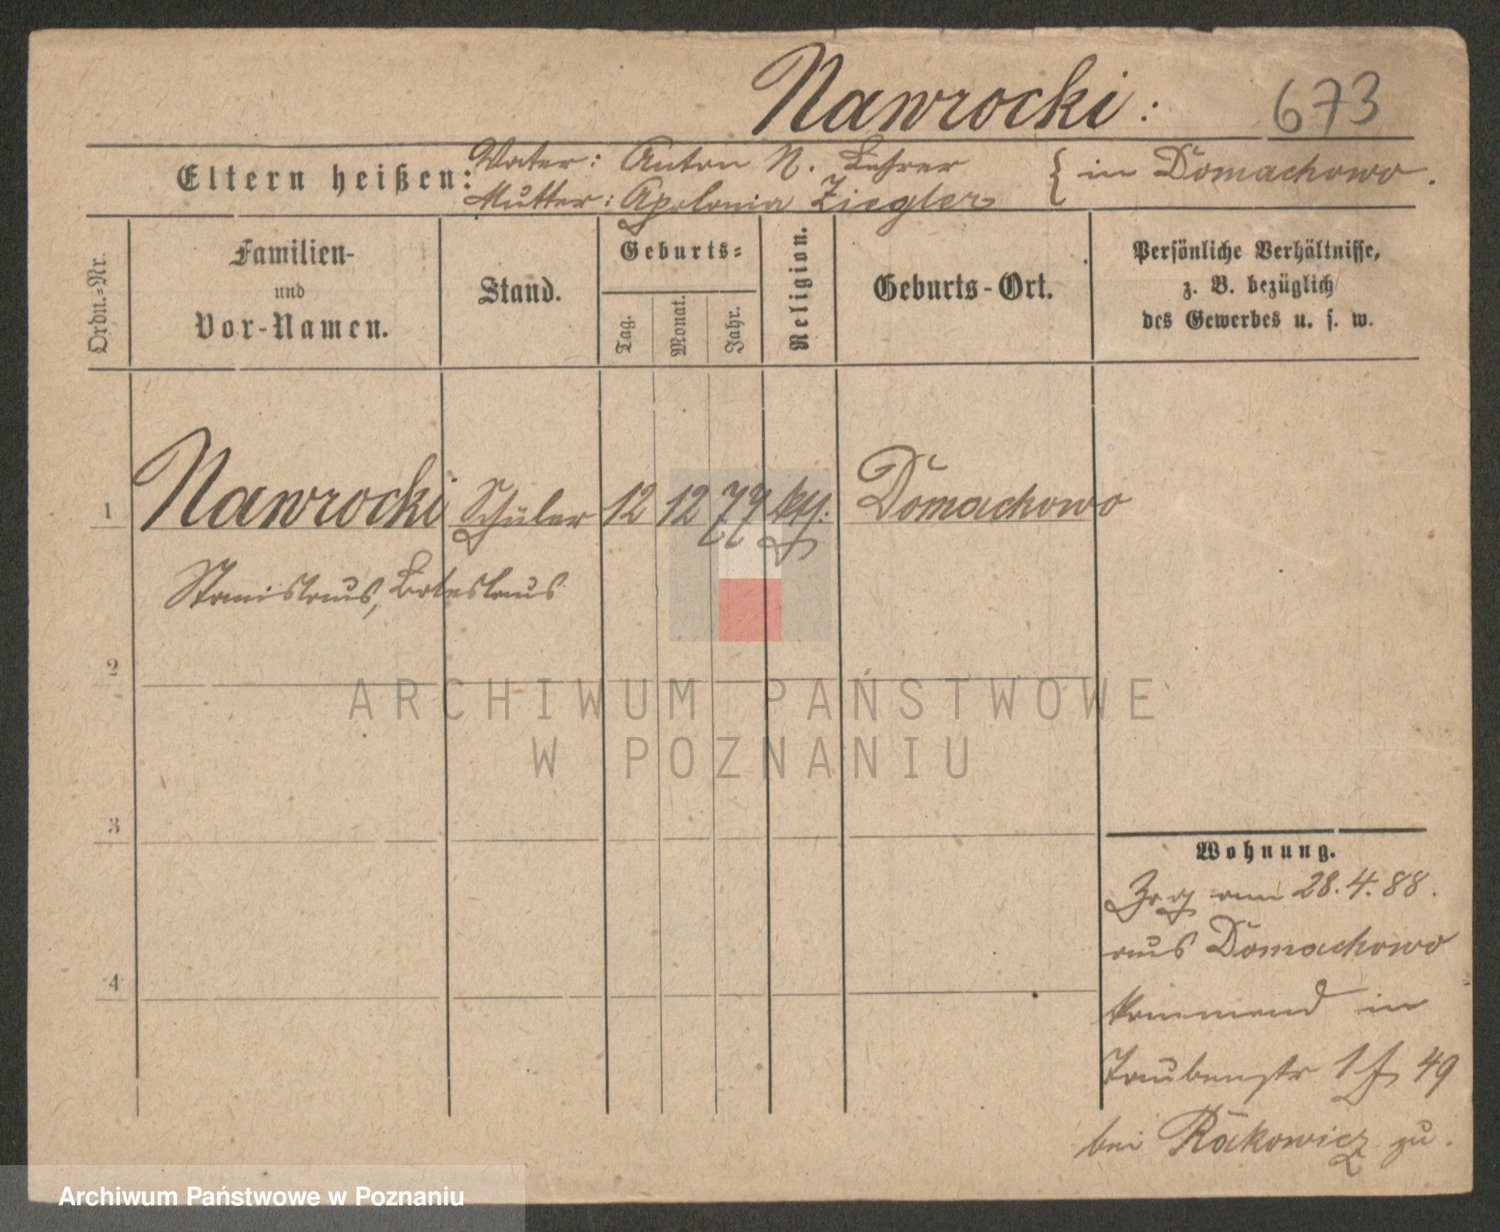 Nawrocki: 673
Eltern heißen: Vater: Anton N. Lehrer
Mutter: Apolonia Ziegler } in Domachowo.
Ordn.-Nr.
Familien-
und
Vor-Namen.
Stand.
Geburts-
Tag.
Monat.
Jahr.
Religion.
Geburts-Ort.
Persönliche Verhältnisse,
z. B. bezüglich
des Gewerbes u. s. w.
1 Nawrocki Schüler 12 12 77 kth. Domachowo
Stanislaus, Boleslaus
2
ARCHIWUM PAŃSTWOWE
W POZNANIU
3
Wohnung.
Zog am 28.4.88.
aus Domachowo
kommend in
Taubenstr 1 49
bei Rakowicz zu.
4
Archiwum Państwowe w Poznaniu